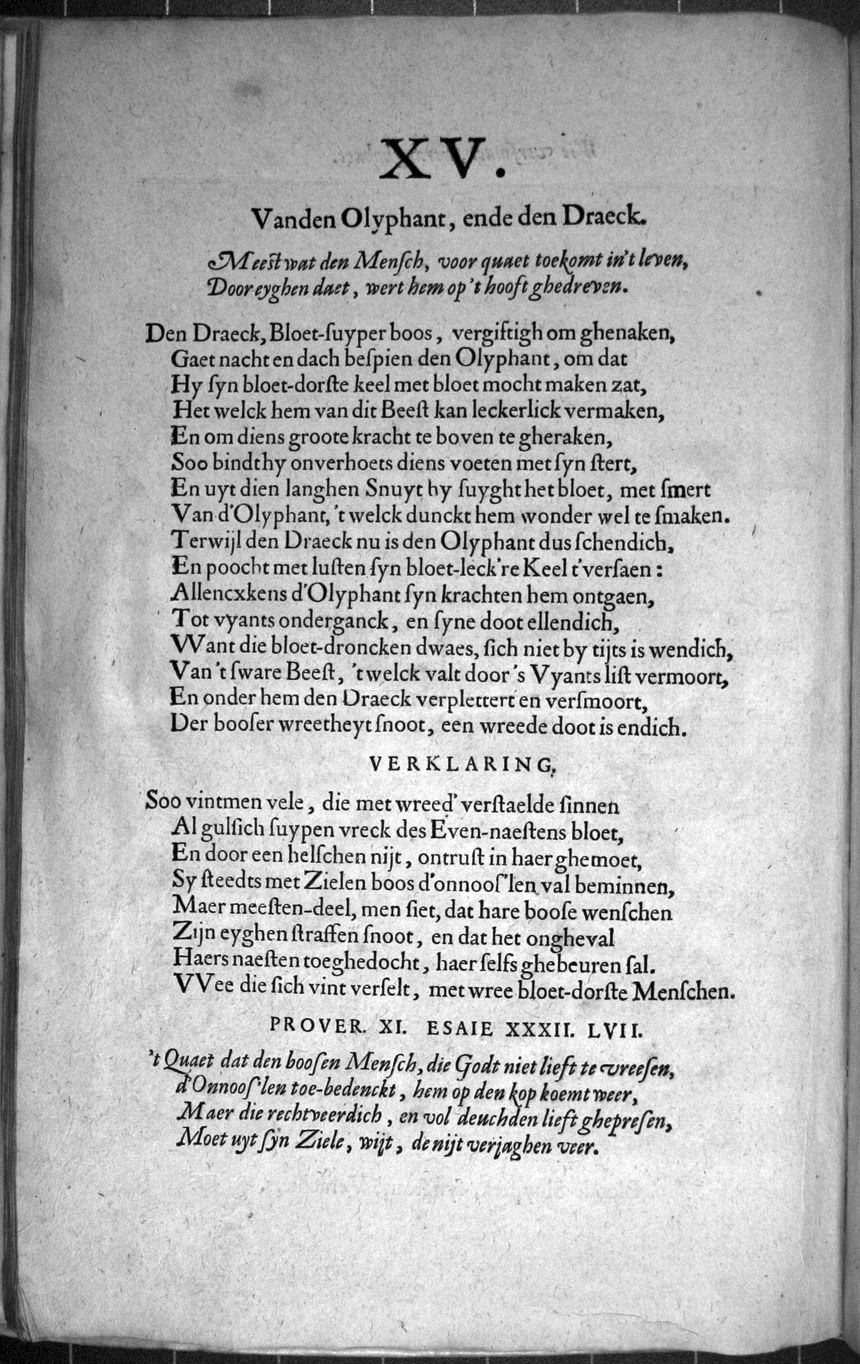 XV.
Vanden Olyphant, ende den Draeck.
Meest wat den Menſch, voor quaet toekomt in't leven,
Door eyghen daet, wert hem op 't hooft ghedreven.
Den Draeck, Bloet-ſuyper boos, vergiftigh om ghenaken,
Gaet nacht en dach beſpien den Olyphant, om dat
Hy ſyn bloet-dorſte keel met bloet mocht maken zat,
Het welck hem van dit Beeſt kan leckerlick vermaken,
En om diens groote kracht te boven te gheraken,
Soo bindt hy onverhoets diens voeten met ſyn ſtert,
En uyt dien langhen Snuyt hy ſuyght het bloet, met ſmert
Van d'Olyphant, 't welck dunckt hem wonder wel te ſmaken.
Terwijl den Draeck nu is den Olyphant dus ſchendich,
En poocht met luſten ſyn bloet-leck're Keel t'verſaen:
Allencxkens d'Olyphant ſyn krachten hem ontgaen,
Tot vyants onderganck, en ſyne doot ellendich,
Want die bloet-droncken dwaes, ſich niet by tijts is wendich,
Van 't ſware Beeſt, 't welck valt door 's Vyants liſt vermoort,
En onder hem den Draeck verplettert en verſmoort,
Der booſer wreetheyt ſnoot, een wreede doot is endich.
VERKLARING.
Soo vintmen vele, die met wreed' verſtaelde ſinnen
Al gulſich ſuypen vreck des Even-naeſtens bloet,
En door een helſchen nijt, ontruſt in haer ghemoet,
Sy ſteedts met Zielen boos d'onnooſ'len val beminnen,
Maer meeſten-deel, men ſiet, dat hare booſe wenſchen
Zijn eyghen ſtraffen ſnoot, en dat het ongheval
Haers naeſten toeghedocht, haer ſelfs ghebeuren ſal.
VVee die ſich vint verſelt, met wree bloet-dorſte Menſchen.
PROVER. XI. ESAIE XXXII. LVII.
't Quaet dat den booſen Menſch, die Godt niet lieft te vreeſen,
d'Onnooſ'len toe-bedenckt, hem op den kop koemt weer,
Maer die rechtveerdich, en vol deuchden lieft ghepreſen,
Moet uyt ſyn Ziele, wijt, de nijt verjaghen veer.